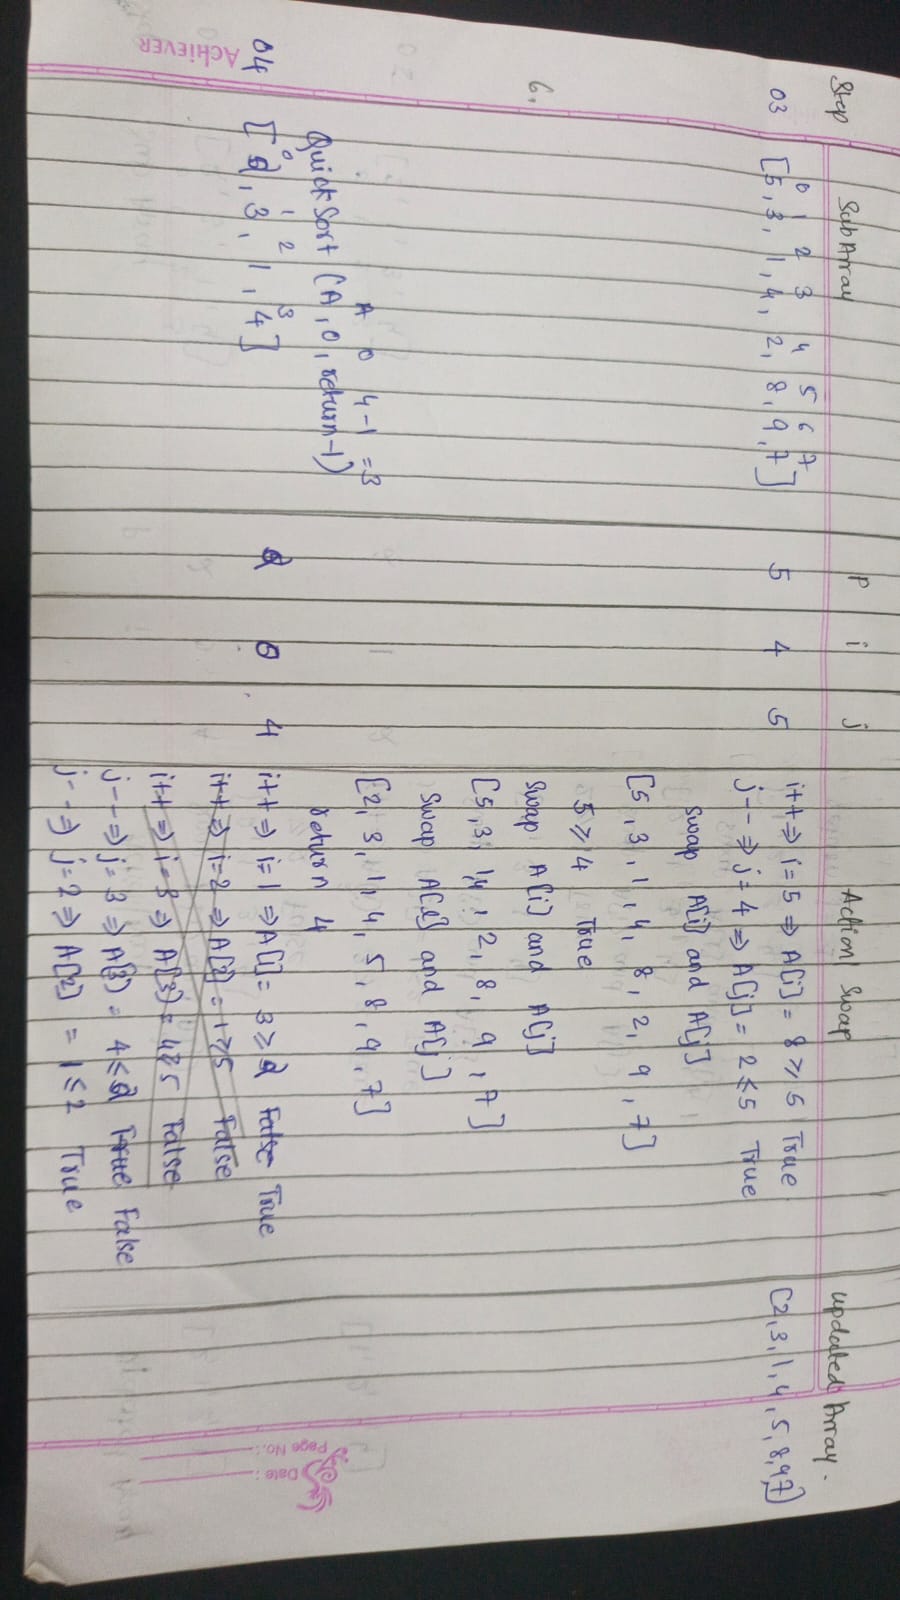 Step SubArray P i j Action/Swap updated Array.
0 1 2 3 4 5 6 7
03 [5,3,1,4,2,8,9,7] 5 4 5 i++ ⇒ i=5 ⇒ A[i]= 8 ≥ 5 True [2,3,1,4,5,8,9,7]
j-- ⇒ j=4 ⇒ A[j]= 2 ≤ 5 True
swap A[i] and A[j]
[5,3,1,4,8,2,9,7]
5 ≥ 4 True
6. swap A[i] and A[j]
[5,3,1,4,2,8,9,7]
swap A[l] and A[j]
A 0 4-1=3 [2,3,1,4,5,8,9,7]
QuickSort (A,0,return-1) return 4
0 1 2 3
04 [2,3,1,4] 2 0 4 i++ ⇒ i=1 ⇒ A[i]= 3 ≥ 2 False True
i++ ⇒ i=2 ⇒ A[2]= 1 ≥ 5 False
i++ ⇒ i=3 ⇒ A[3]= 4 ≥ 5 False
j-- ⇒ j=3 ⇒ A[3]= 4 ≤ 2 True False
j-- ⇒ j=2 ⇒ A[2] = 1 ≤ 2 True
ACHIEVER
Page No.:
Date: